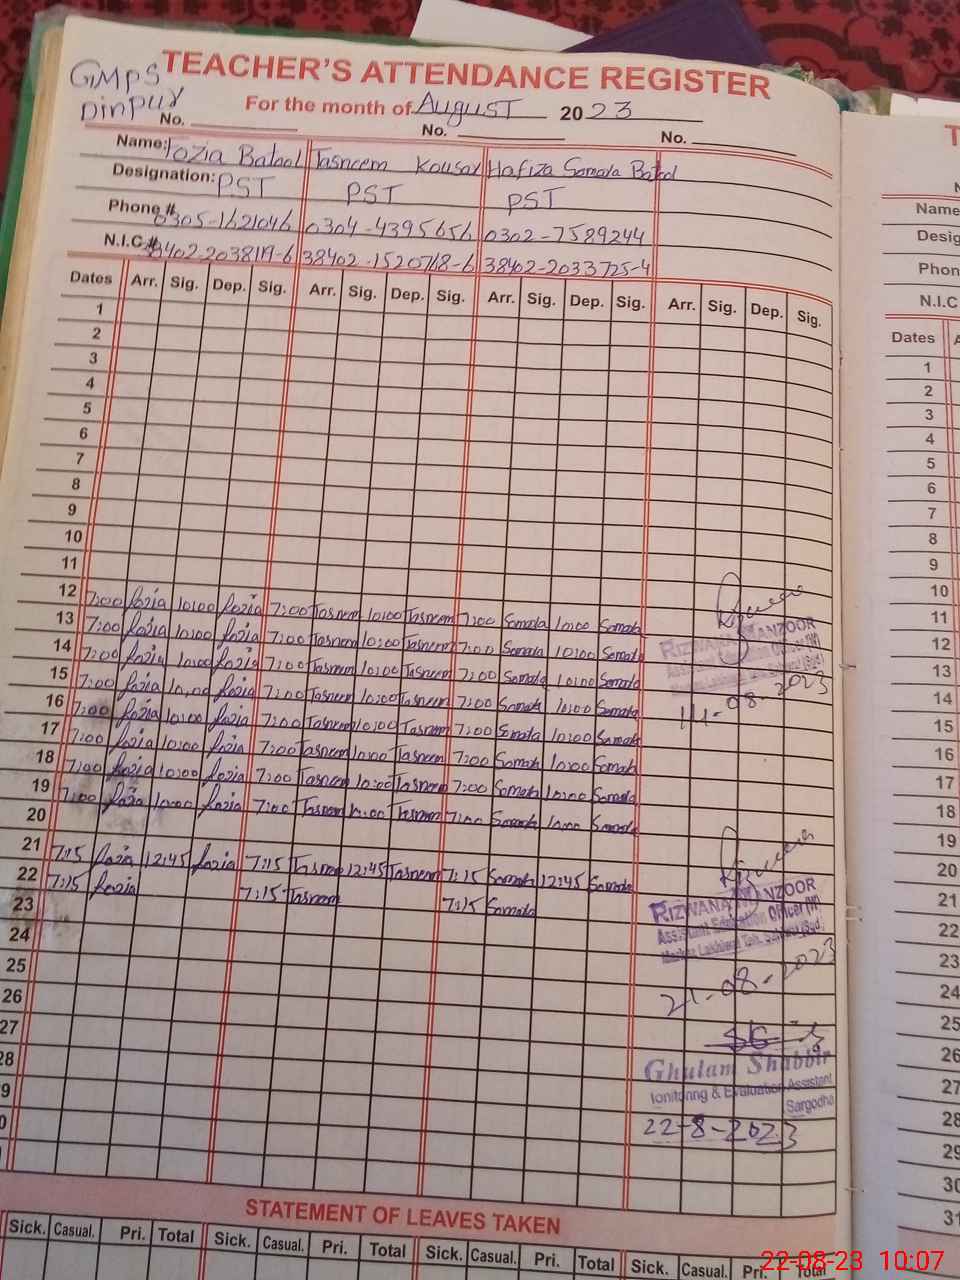 GMPS
Dinpur
TEACHER'S ATTENDANCE REGISTER
For the month of August 2023
No. No. No.
Name: Fozia Batool Tasneem Kousar Hafiza Samala Batool
Designation: PST PST PST
Phone # 0305-1621046 0304-4395656 0302-7589244
N.I.C # 38402-1520768-6 38402-2033725-4
Dates Arr. Sig. Dep. Sig. Arr. Sig. Dep. Sig. Arr. Sig. Dep. Sig. Arr. Sig. Dep. Sig.
1
2
3
4
5
6
7
8
9
10
11
12 7:00 fozia 10:00 fozia 7:00 Tasneem 10:00 Tasneem 7:00 Samala 10:00 Samala
13 7:00 fozia 10:00 fozia 7:00 Tasneem 10:00 Tasneem 7:00 Samala 10:00 Samala
14 7:00 fozia 10:00 fozia 7:00 Tasneem 10:00 Tasneem 7:00 Samala 10:00 Samala
15 7:00 fozia 10:00 fozia 7:00 Tasneem 10:00 Tasneem 7:00 Samala 10:00 Samala
16 7:00 fozia 10:00 fozia 7:00 Tasneem 10:00 Tasneem 7:00 Samala 10:00 Samala
17 7:00 fozia 10:00 fozia 7:00 Tasneem 10:00 Tasneem 7:00 Samala 10:00 Samala
18 7:00 fozia 10:00 fozia 7:00 Tasneem 10:00 Tasneem 7:00 Samala 10:00 Samala
19 7:00 fozia 10:00 fozia 7:00 Tasneem 10:00 Tasneem 7:00 Samala 10:00 Samala
20
21 7:15 fozia 12:45 fozia 7:15 Tasneem 12:45 Tasneem 7:15 Samala 12:45 Samala
22 7:15 fozia 7:15 Tasneem 7:15 Samala
23
24
25
26
27
28
9
0
RIZWANA MANZOOR
Assistant Education Officer (W)
14-08-2023
RIZWANA MANZOOR
Assistant Education Officer (W)
Markaz Lakhiwal Teh. Sahiwal (Sgd)
21-08-2023
Ghulam Shabbir
Monitoring & Evaluation Assistant
Sargodha
22-8-2023
STATEMENT OF LEAVES TAKEN
Sick. Casual. Pri. Total Sick. Casual. Pri. Total Sick. Casual. Pri. Total Sick. Casual. Pri. Total
T
Name
Desig
Phon
N.I.C
Dates A
1
2
3
4
5
6
7
8
9
10
11
12
13
14
15
16
17
18
19
20
21
22
23
24
25
26
27
28
29
30
31
22-08-23 10:07